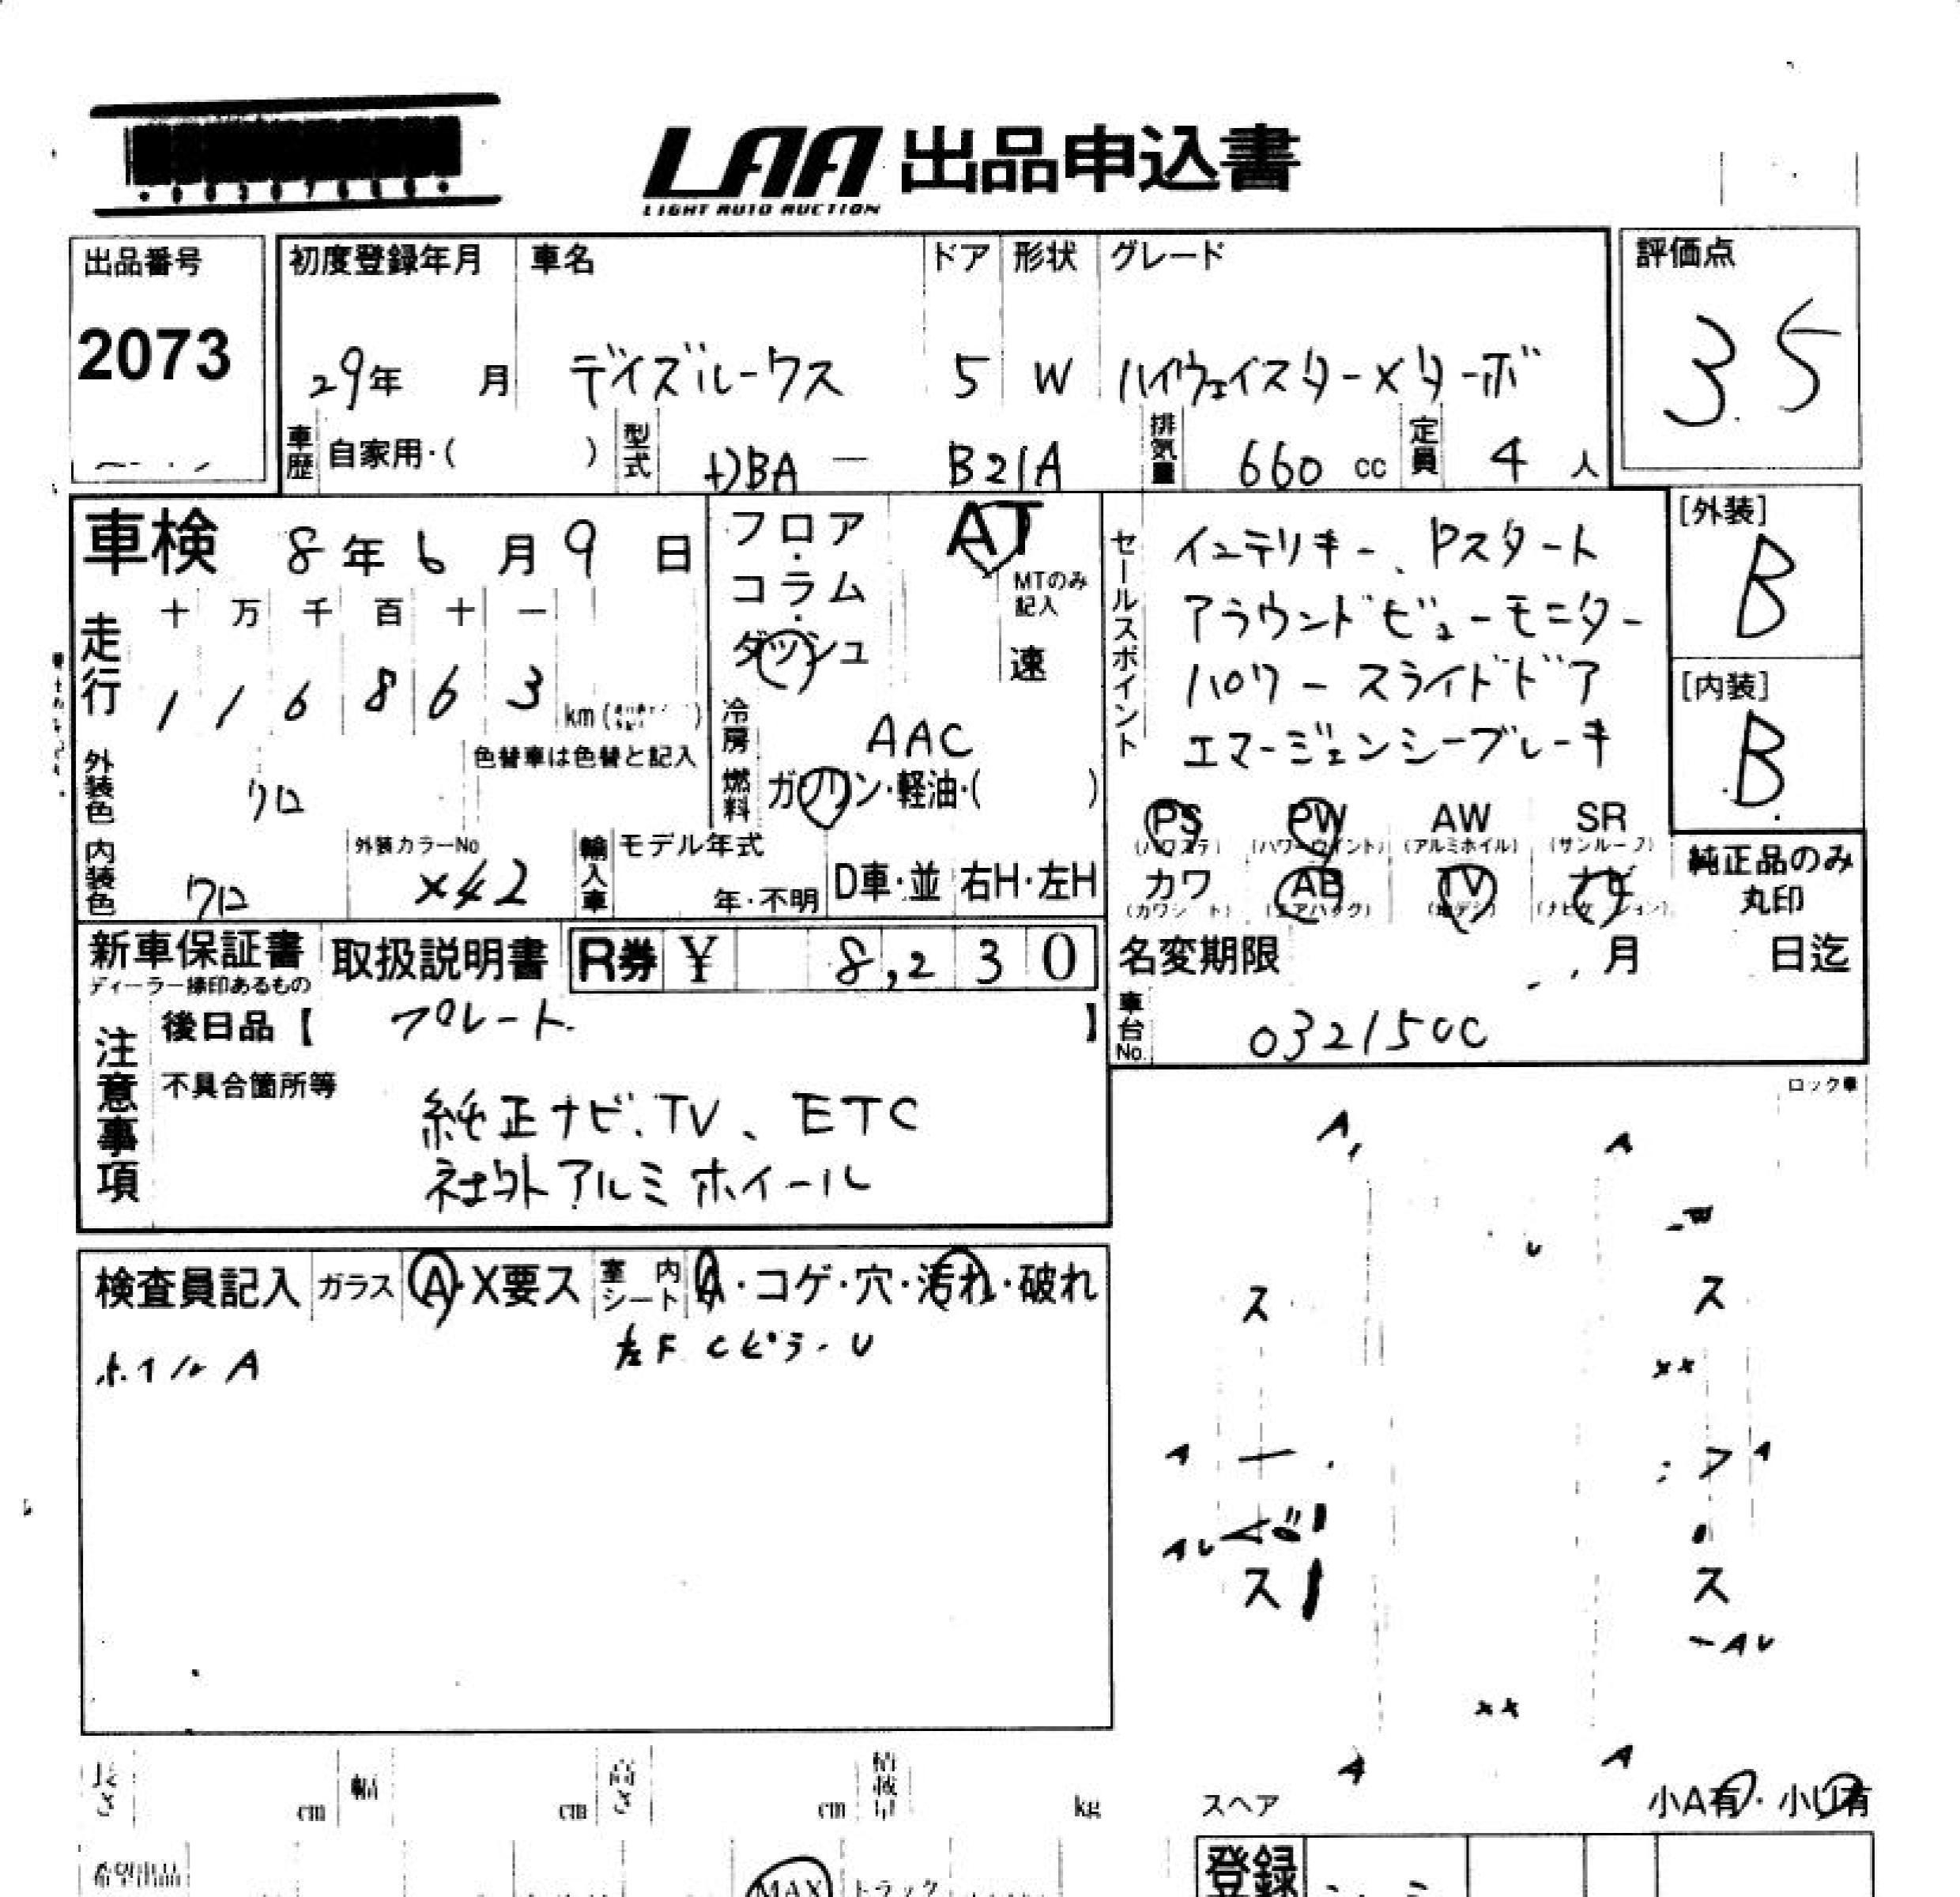 LAA 出品申込書
LIGHT AUTO AUCTION
出品番号 初度登録年月 車名 ドア 形状 グレード 評価点
2073 29年 月 デイズルークス 5 W ハイウェイスターXターボ 3.5
車歴 自家用・( ) 型式 DBA - B21A 排気量 660 cc 定員 4 人
車検 8年6月9日 フロア・コラム・ダッシュ AT
MTのみ記入
速
走行 十 万 千 百 十 一
1 1 6 8 6 3 km
冷房 AAC
燃料 ガソリン・軽油・( )
外装色 クロ 色替車は色替と記入
内装色 クロ 外装カラーNo X42 輸入車 モデル年式 年・不明 D車・並 右H・左H
セールスポイント
インテリキー、Pスタート
アラウンドビューモニター
パワースライドドア
エマージェンシーブレーキ
PS PW AW SR
(パワステ) (パワーウインド) (アルミホイル) (サンルーフ)
カワ AB TV ナビ
(カワシート) (エアバック) (地デジ) (ナビゲーション)
[外装]
B
[内装]
B
純正品のみ
丸印
新車保証書 取扱説明書 R券 ¥ 8,230
ディーラー捺印あるもの
名変期限 月 日迄
車台No. 0321500
注意事項
後日品【 プレート 】
不具合箇所等
純正ナビ、TV、ETC
社外アルミホイール
検査員記入 ガラス A・X要ス 室内シート A・コゲ・穴・汚れ・破れ
ホイルA 左F Cピラー U
ロック車
A A
W
U
ス ス
XX
A A
AU
ス ス
AU
XX
A A
長さ cm 幅 cm 高さ cm 積載量 kg
スペア 小A有・小U有
希望出品
MAX トラック
登録